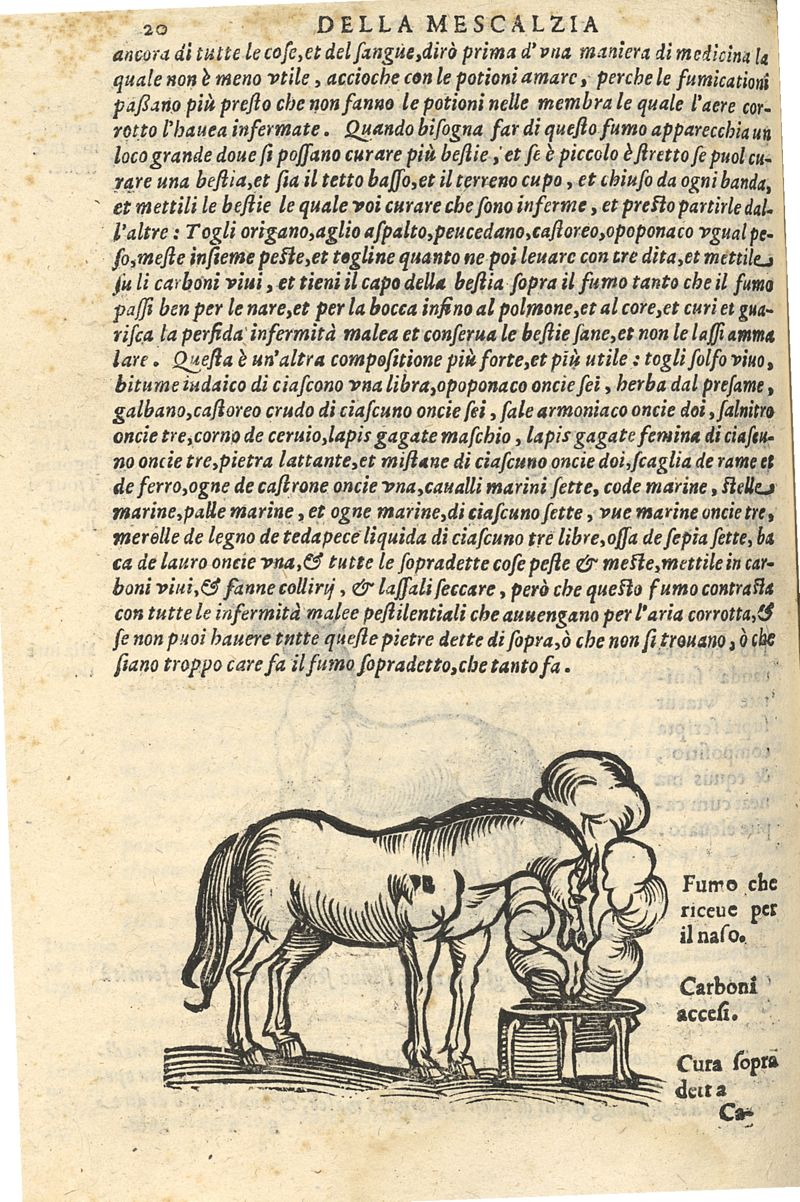 20 DELLA MESCALZIA
ancora di tutte le cose, et del sangue, dirò prima d'vna maniera di medicina la
quale non è meno vtile, accioche con le potioni amare, perche le fumicationi
paßano più presto che non fanno le potioni nelle membra le quale l'aere cor-
rotto l'hauea infermate. Quando bisogna far di questo fumo apparecchia un
loco grande doue si possano curare più bestie, et se è piccolo è stretto se puol cu-
rare una bestia, et sia il tetto basso, et il terreno cupo, et chiuso da ogni banda,
et mettili le bestie le quale voi curare che sono inferme, et presto partirle dal-
l'altre: Togli origano, aglio aspalto, peucedano, castoreo, opoponaco vgual pe-
so, meste insieme peste, et togline quanto ne poi leuare con tre dita, et mettile
su li carboni viui, et tieni il capo della bestia sopra il fumo tanto che il fumo
passi ben per le nare, et per la bocca infino al polmone, et al core, et curi et gua-
risca la perfida infermità malea et conserua le bestie sane, et non le lassi amma
lare. Questa è un'altra compositione più forte, et più utile: togli solfo viuo,
bitume iudaico di ciascono vna libra, opoponaco oncie sei, herba dal presame,
galbano, castoreo crudo di ciascuno oncie sei, sale armoniaco oncie doi, salnitro
oncie tre, corno de ceruio, lapis gagate maschio, lapis gagate femina di ciascu-
no oncie tre, pietra lattante, et mistane di ciascuno oncie doi, scaglia de rame et
de ferro, ogne de castrone oncie vna, caualli marini sette, code marine, stelle
marine, palle marine, et ogne marine, di ciascuno sette, vue marine oncie tre,
merolle de legno de tedapece liquida di ciascuno tre libre, ossa de sepia sette, ba
ca de lauro oncie vna, & tutte le sopradette cose peste & meste, mettile in car-
boni viui, & fanne collirij, & lassali seccare, però che questo fumo contrasta
con tutte le infermità malee pestilentiali che auuengano per l'aria corrotta, &
se non puoi hauere tntte queste pietre dette di sopra, ò che non si trouano, ò che
siano troppo care fa il fumo sopradetto, che tanto fa.
Fumo che
riceue per
il naso.
Carboni
accesi.
Cura sopra
detta
Ca-